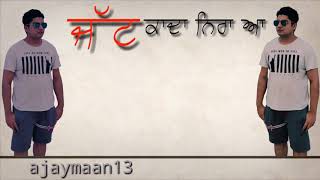 ਜੱਟ ਕਾਦਾ ਨਿਰਾ ਆ
ajaymaan13